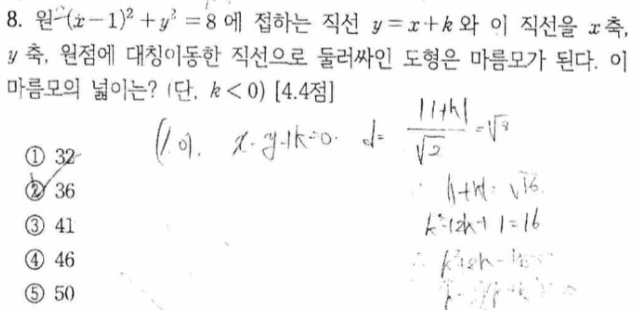 8. 원 (x-1)² + y² = 8 에 접하는 직선 y = x + k 와 이 직선을 x 축,
y 축, 원점에 대칭이동한 직선으로 둘러싸인 도형은 마름모가 된다. 이
마름모의 넓이는? (단, k < 0) [4.4점]
|1+k|
(1, 0). x-y+k=0. d= ─── =√8
√2
① 32
② 36
|1+k| = √16
③ 41
k²+2k+1=16
④ 46
⑤ 50